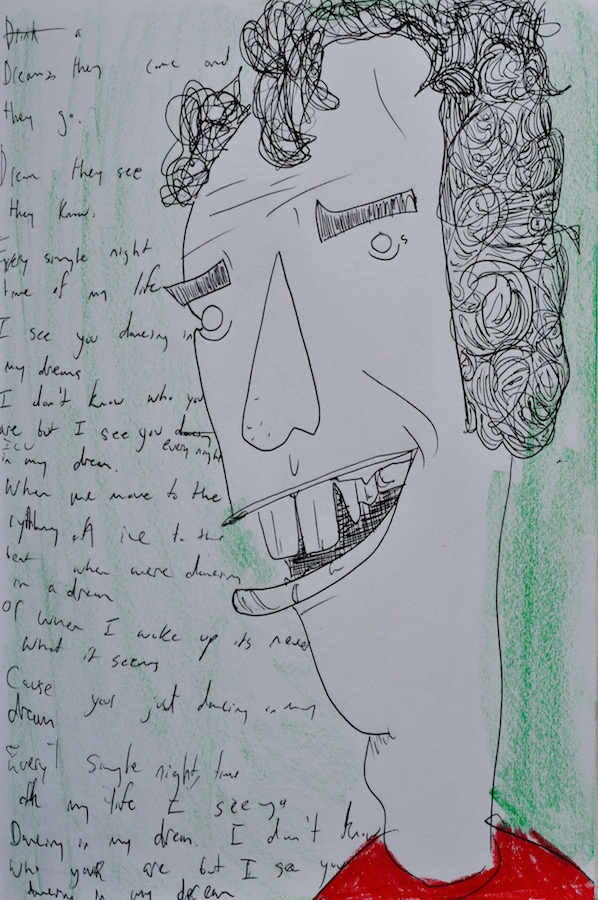 a
Dreams they come and
they go.
Dream they see
they know.
Every single night
time of my life
I see you dancing in
my dreams
I don't know who you
are but I see you dancing
ICU every night
in my dream.
When we move to the
to the
beat when were dancing
in a dream
Or when I wake up its never
what it seems
Cause your just dancing in my
dream
Every single night, time
of my life I see you
Dancing in my dream. I don't know
who your are but I see you
dancing in my dream